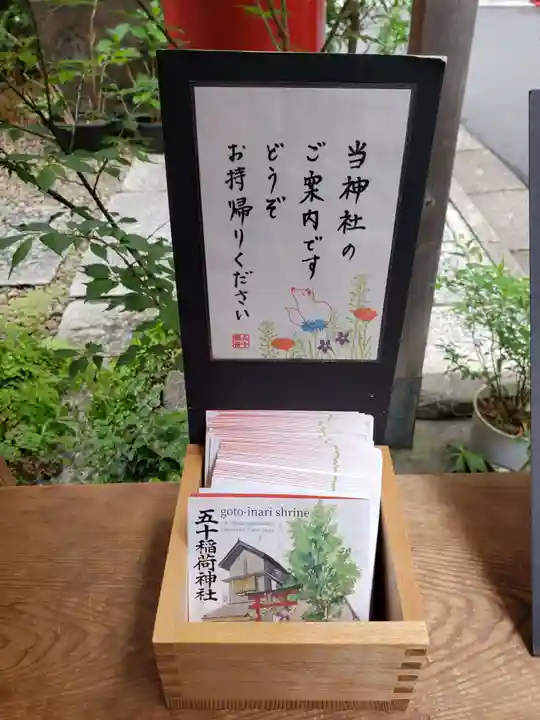 当神社の
ご案内です
どうぞ
お持帰りください
goto-inari shrine
五十稲荷神社